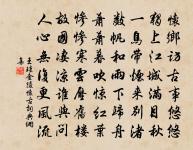 懷鄉訪古事悠悠
獨上江城滿目秋
一鳥帶煙來別渚
數帆和雨下歸舟
蕭蕭暮吹驚紅葉
慘慘寒雲壓舊樓
故國淒涼誰與問
人心無復更風流
王珪金陵懷古詞典網
集